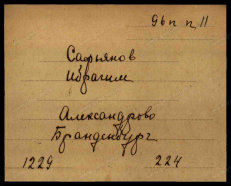 96п п 11
Сафьянов
Ибрагим
Александрово
Бранденбург
1229 224